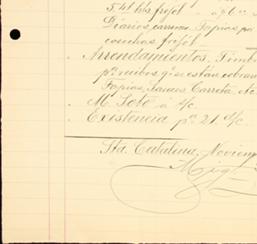 5.41 hls frejol - a $6
Diarios, carreras, Tapias, pa
conchas frejol
Arrendamientos. Timb
pa recibos qe se estan cobran
Tapias, Saises Carreta &c
M. Soto á c/c
Existencia pr 21. c/c
Sta. Catalina, Noviem
Mig